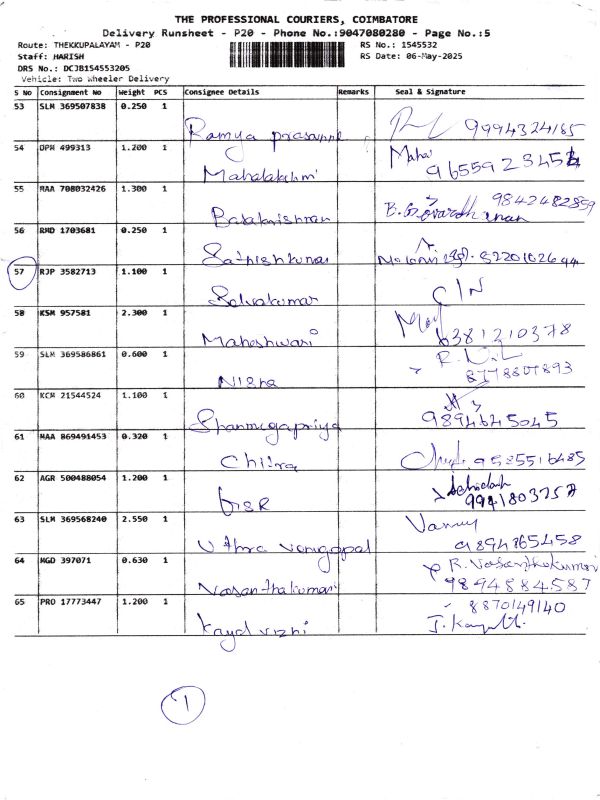 THE PROFESSIONAL COURIERS, COIMBATORE
Delivery Runsheet - P20 - Phone No.:9047080280 - Page No.:5
Route: THEKKUPALAYAM - P20
RS No.: 1545532
Staff: HARISH
RS Date: 06-May-2025
DRS No.: DCJB154553205
Vehicle: Two Wheeler Delivery
S No Consignment No Weight PCS Consignee Details Remarks Seal & Signature
53 SLM 369507838 0.250 1
Ramya prasanna 9994324165
54 DPM 499313 1.200 1 Maha
Mahalakshmi
55 MAA 708032426 1.300 1 9842482899
Balakrishnan
56 RMD 1703681 0.250 1
Sathishkumar
57 RJP 3582713 1.100 1
Selvakumar
58 KSM 957581 2.300 1
Maheshwari 6381210378
59 SLM 369586861 0.600 1
Nisha 8778807893
60 KCM 21544524 1.100 1
Shanmugapriya 9894645045
61 MAA 869491453 0.320 1
Chitra 9585516485
62 AGR 500488054 1.200 1
63 SLM 369568240 2.550 1
Uthra Venugopal 9894865458
64 MGD 397071 0.630 1 R. Vasanthakumari
Vasanthakumari 9894884587
65 PRO 17773447 1.200 1 8870149140
Kayal vizhi
1